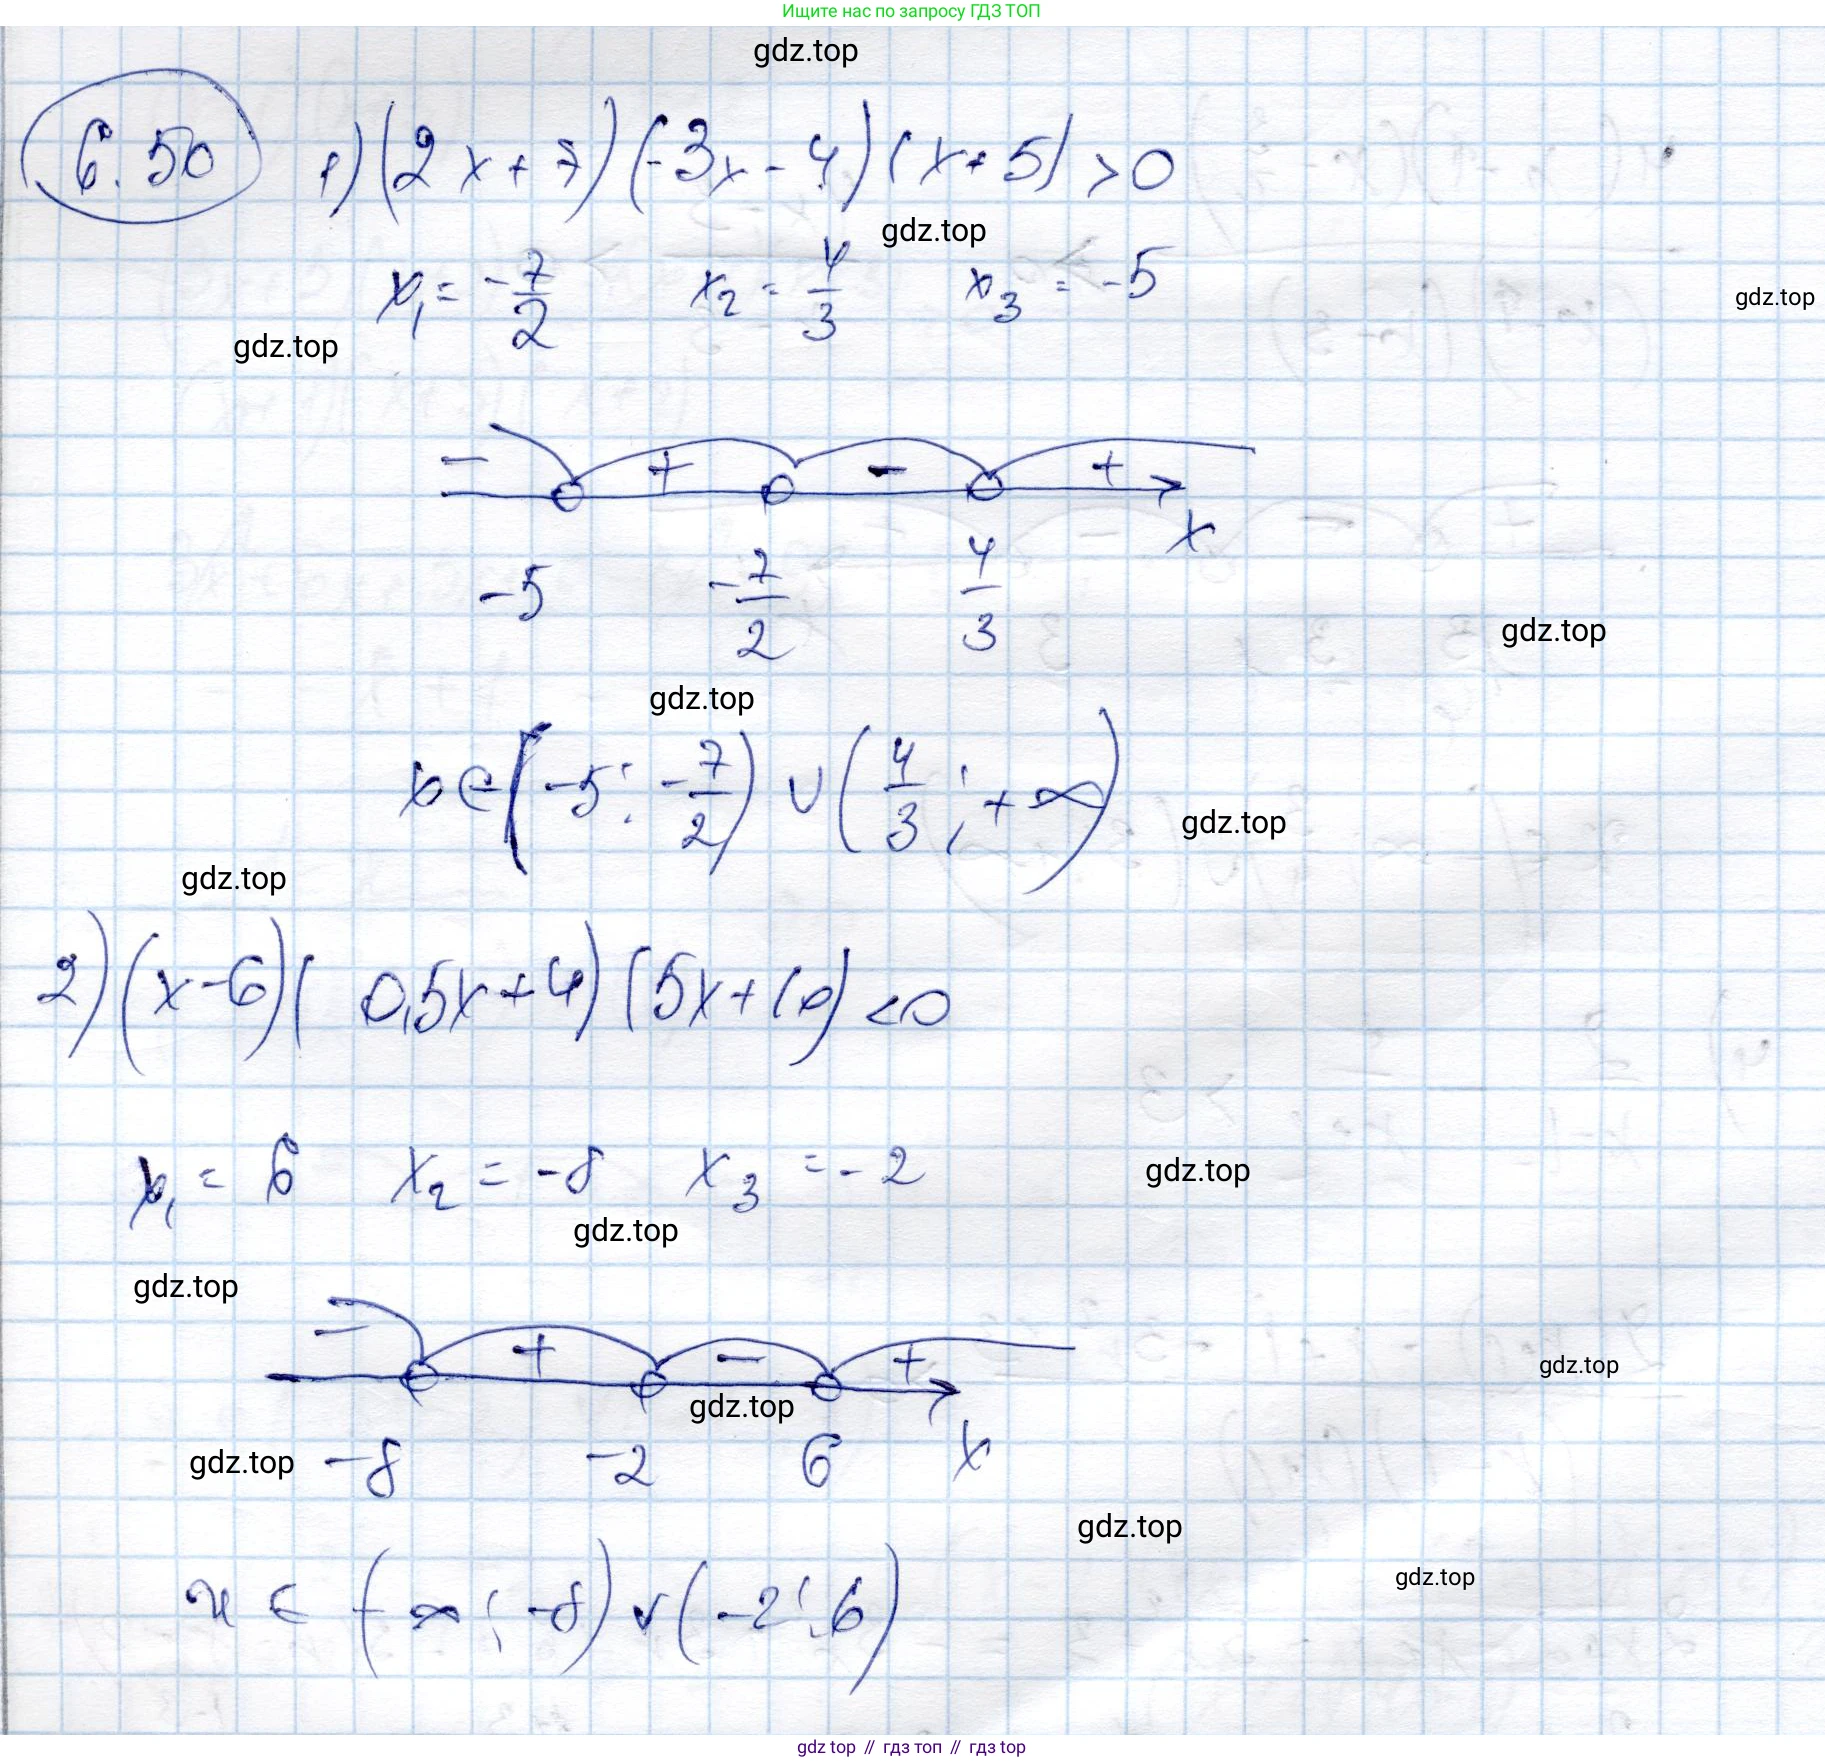 Ищите нас по запросу ГДЗ ТОП
gdz.top
6.50 1) (2x+7)(-3x-4)(x+5)>0
gdz.top
x₁ = -7/2 x₂ = 4/3 x₃ = -5
gdz.top
gdz.top
- + - +
x
-5 -7/2 4/3
gdz.top
gdz.top
x∈(-5; -7/2) ∪ (4/3; +∞)
gdz.top
gdz.top
2) (x-6)( 0,5x+4)(5x+10)<0
x₁ = 6 x₂ = -8 x₃ = -2
gdz.top
gdz.top
gdz.top
- + - +
gdz.top
gdz.top
gdz.top
-8 -2 6 x
gdz.top
gdz.top
x ∈ (-∞; -8) ∪ (-2; 6)
gdz top // гдз топ // гдз top